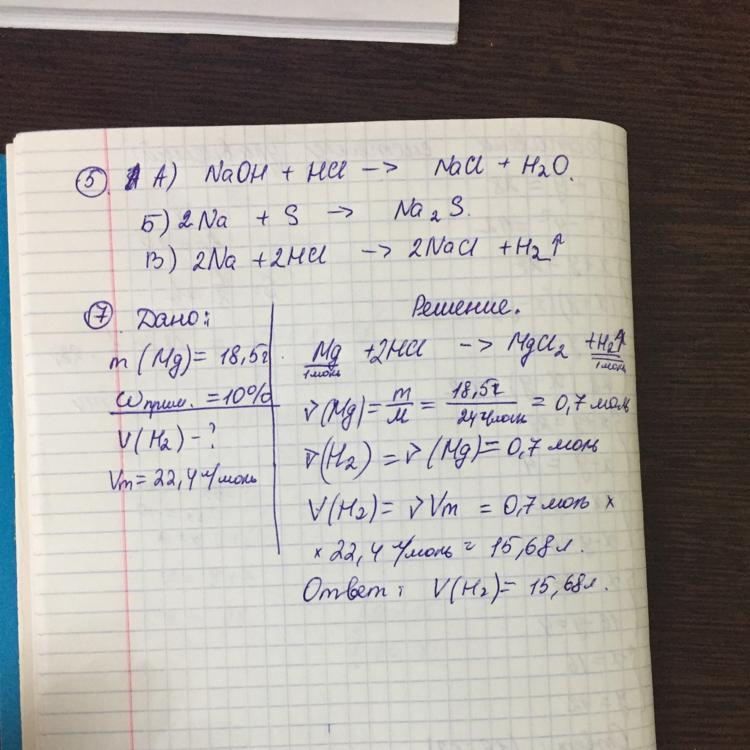 5 А) NaOH + HCl -> NaCl + H2O.
Б) 2Na + S -> Na2S.
В) 2Na + 2HCl -> 2NaCl + H2↑
7 Дано:
m(Mg) = 18,5г.
ω прим. = 10%
V(H2) - ?
Vm = 22,4 л/моль
Решение.
Mg + 2HCl -> MgCl2 + H2↑
1моль 1моль
ν(Mg) = m/M = 18,5г/24 г/моль = 0,7 моль
ν(H2) = ν(Mg) = 0,7 моль
V(H2) = ν Vm = 0,7 моль ×
× 22,4 л/моль = 15,68 л.
Ответ: V(H2) = 15,68 л.